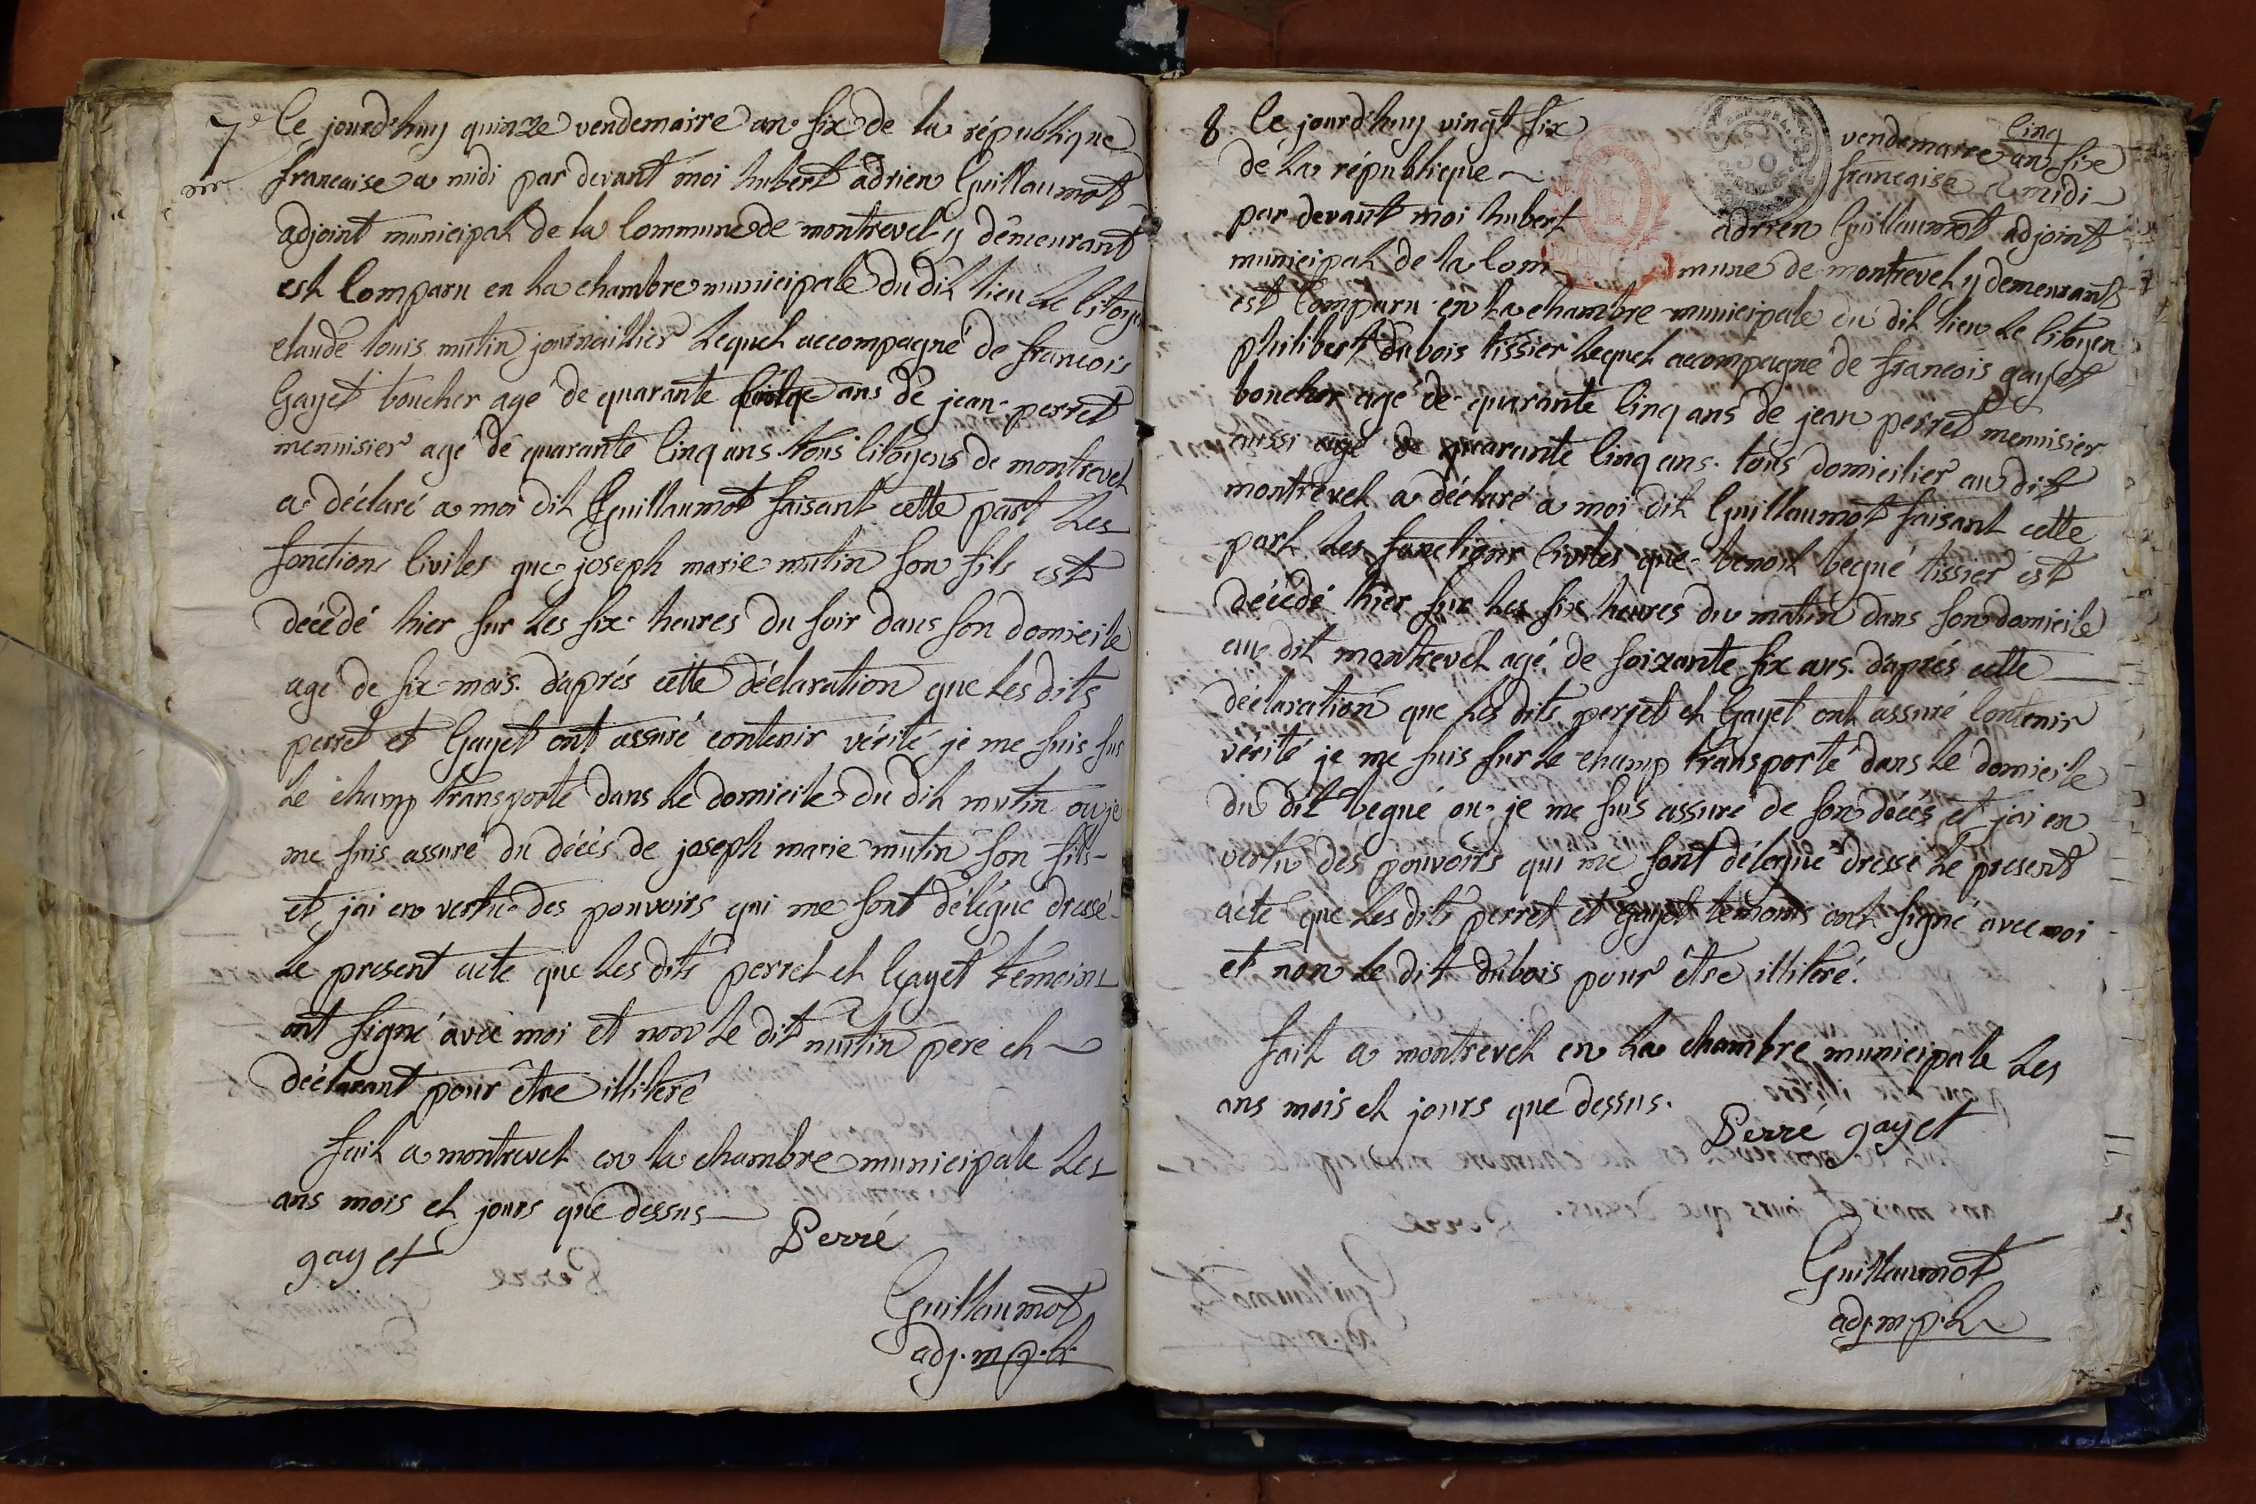 7e Ce jourd'huy quinze vendemairre an six de la république
francaise a midi par devant moi hubert adrien Guillaumot
adjoint municipal de la Commune de montrevel y demeurant
est Comparu en la chambre municipale du dit lieu le Citoyen
claude louis mutin journaillier lequel accompagné de francois
Gayet boucher age de quarante ans de jean perret
mennisier agé de quarante Cinq ans tous Citoyens de montrevel
a déclaré a moi dit Guillaumot faisant cette part les
fonctions Civiles que joseph marie mutin son fils est
décédé hier sur les six heures du soir dans son domicile
age de six mois. d'aprés cette déclaration que les dits
perret et Gayet ont assuré contenir vérité je me suis sur
le champ transporté dans le domicile du dit mutin ou je
me suis assuré du décés de joseph marie mutin son fils
et jai en vertu des pouvoirs qui me sont délégué dressé
le present acte que les dits perret et Gayet témoins
ont signé avec moi et non le dit mutin pere et
déclarant pour être illiteré
fait a montrevel en la chambre municipale les
ans mois et jours que dessus
gayet Perré
Guillaumot
adj. m.p.l.
8 Ce jourd'huy vingt six vendemairre an six
Cinq
de la république francaise a midi
par devant moi hubert adrien Guillaumot adjoint
municipal de la Commune de montrevel y demeurant
est Comparu en la chambre municipale du dit lieu le Citoyen
philibert dubois tissier lequel accompagné de francois gayet
boucher agé de quarante Cinq ans de jean perret mennisier
aussi agé de quarante Cinq ans. tous domicilier au dit
montrevel a déclaré a moi dit Guillaumot faisant cette
part les fonctions Civiles que benoit begué tissier est
décédé hier sur les six heures du matin dans son domicile
au dit montrevel agé de soixante six ans. d'aprés cette
déclaration que les dits perret et Gayet ont assuré Contenir
vérité je me suis sur le champ transporté dans le domicile
du dit begué ou je me suis assuré de son décés et jai en
vertu des pouvoirs qui me sont délégué dressé le present
acte que les dits perret et gayet temoins ont signé avec moi
et non le dit dubois pour être illiteré.
fait a montrevel en la chambre municipale les
ans mois et jours que dessus.
Perré gayet
Guillaumot
adj. m.p.l.